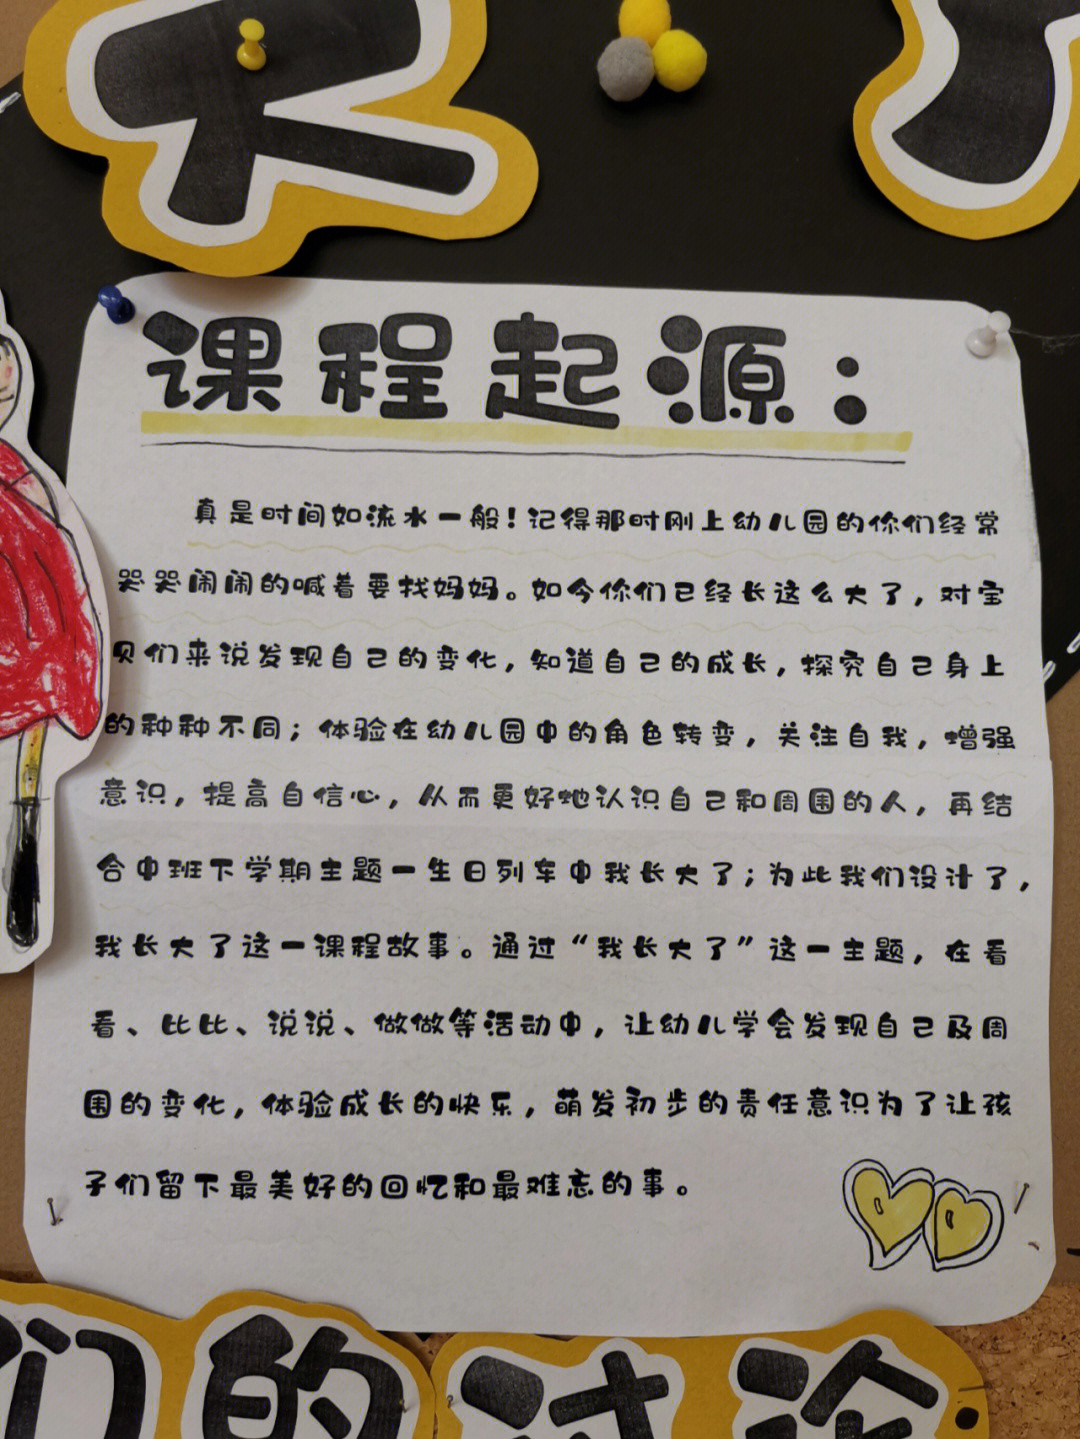 大了
课程起源：
真是时间如流水一般！记得那时刚上幼儿园的你们经常
哭哭闹闹的喊着要找妈妈。如今你们已经长这么大了，对宝
贝们来说发现自己的变化，知道自己的成长，探究自己身上
的种种不同；体验在幼儿园中的角色转变，关注自我，增强
意识，提高自信心，从而更好地认识自己和周围的人，再结
合中班下学期主题一生日列车中我长大了；为此我们设计了，
我长大了这一课程故事。通过“我长大了”这一主题，在看
看、比比、说说、做做等活动中，让幼儿学会发现自己及周
围的变化，体验成长的快乐，萌发初步的责任意识为了让孩
子们留下最美好的回忆和最难忘的事。
们的讨论